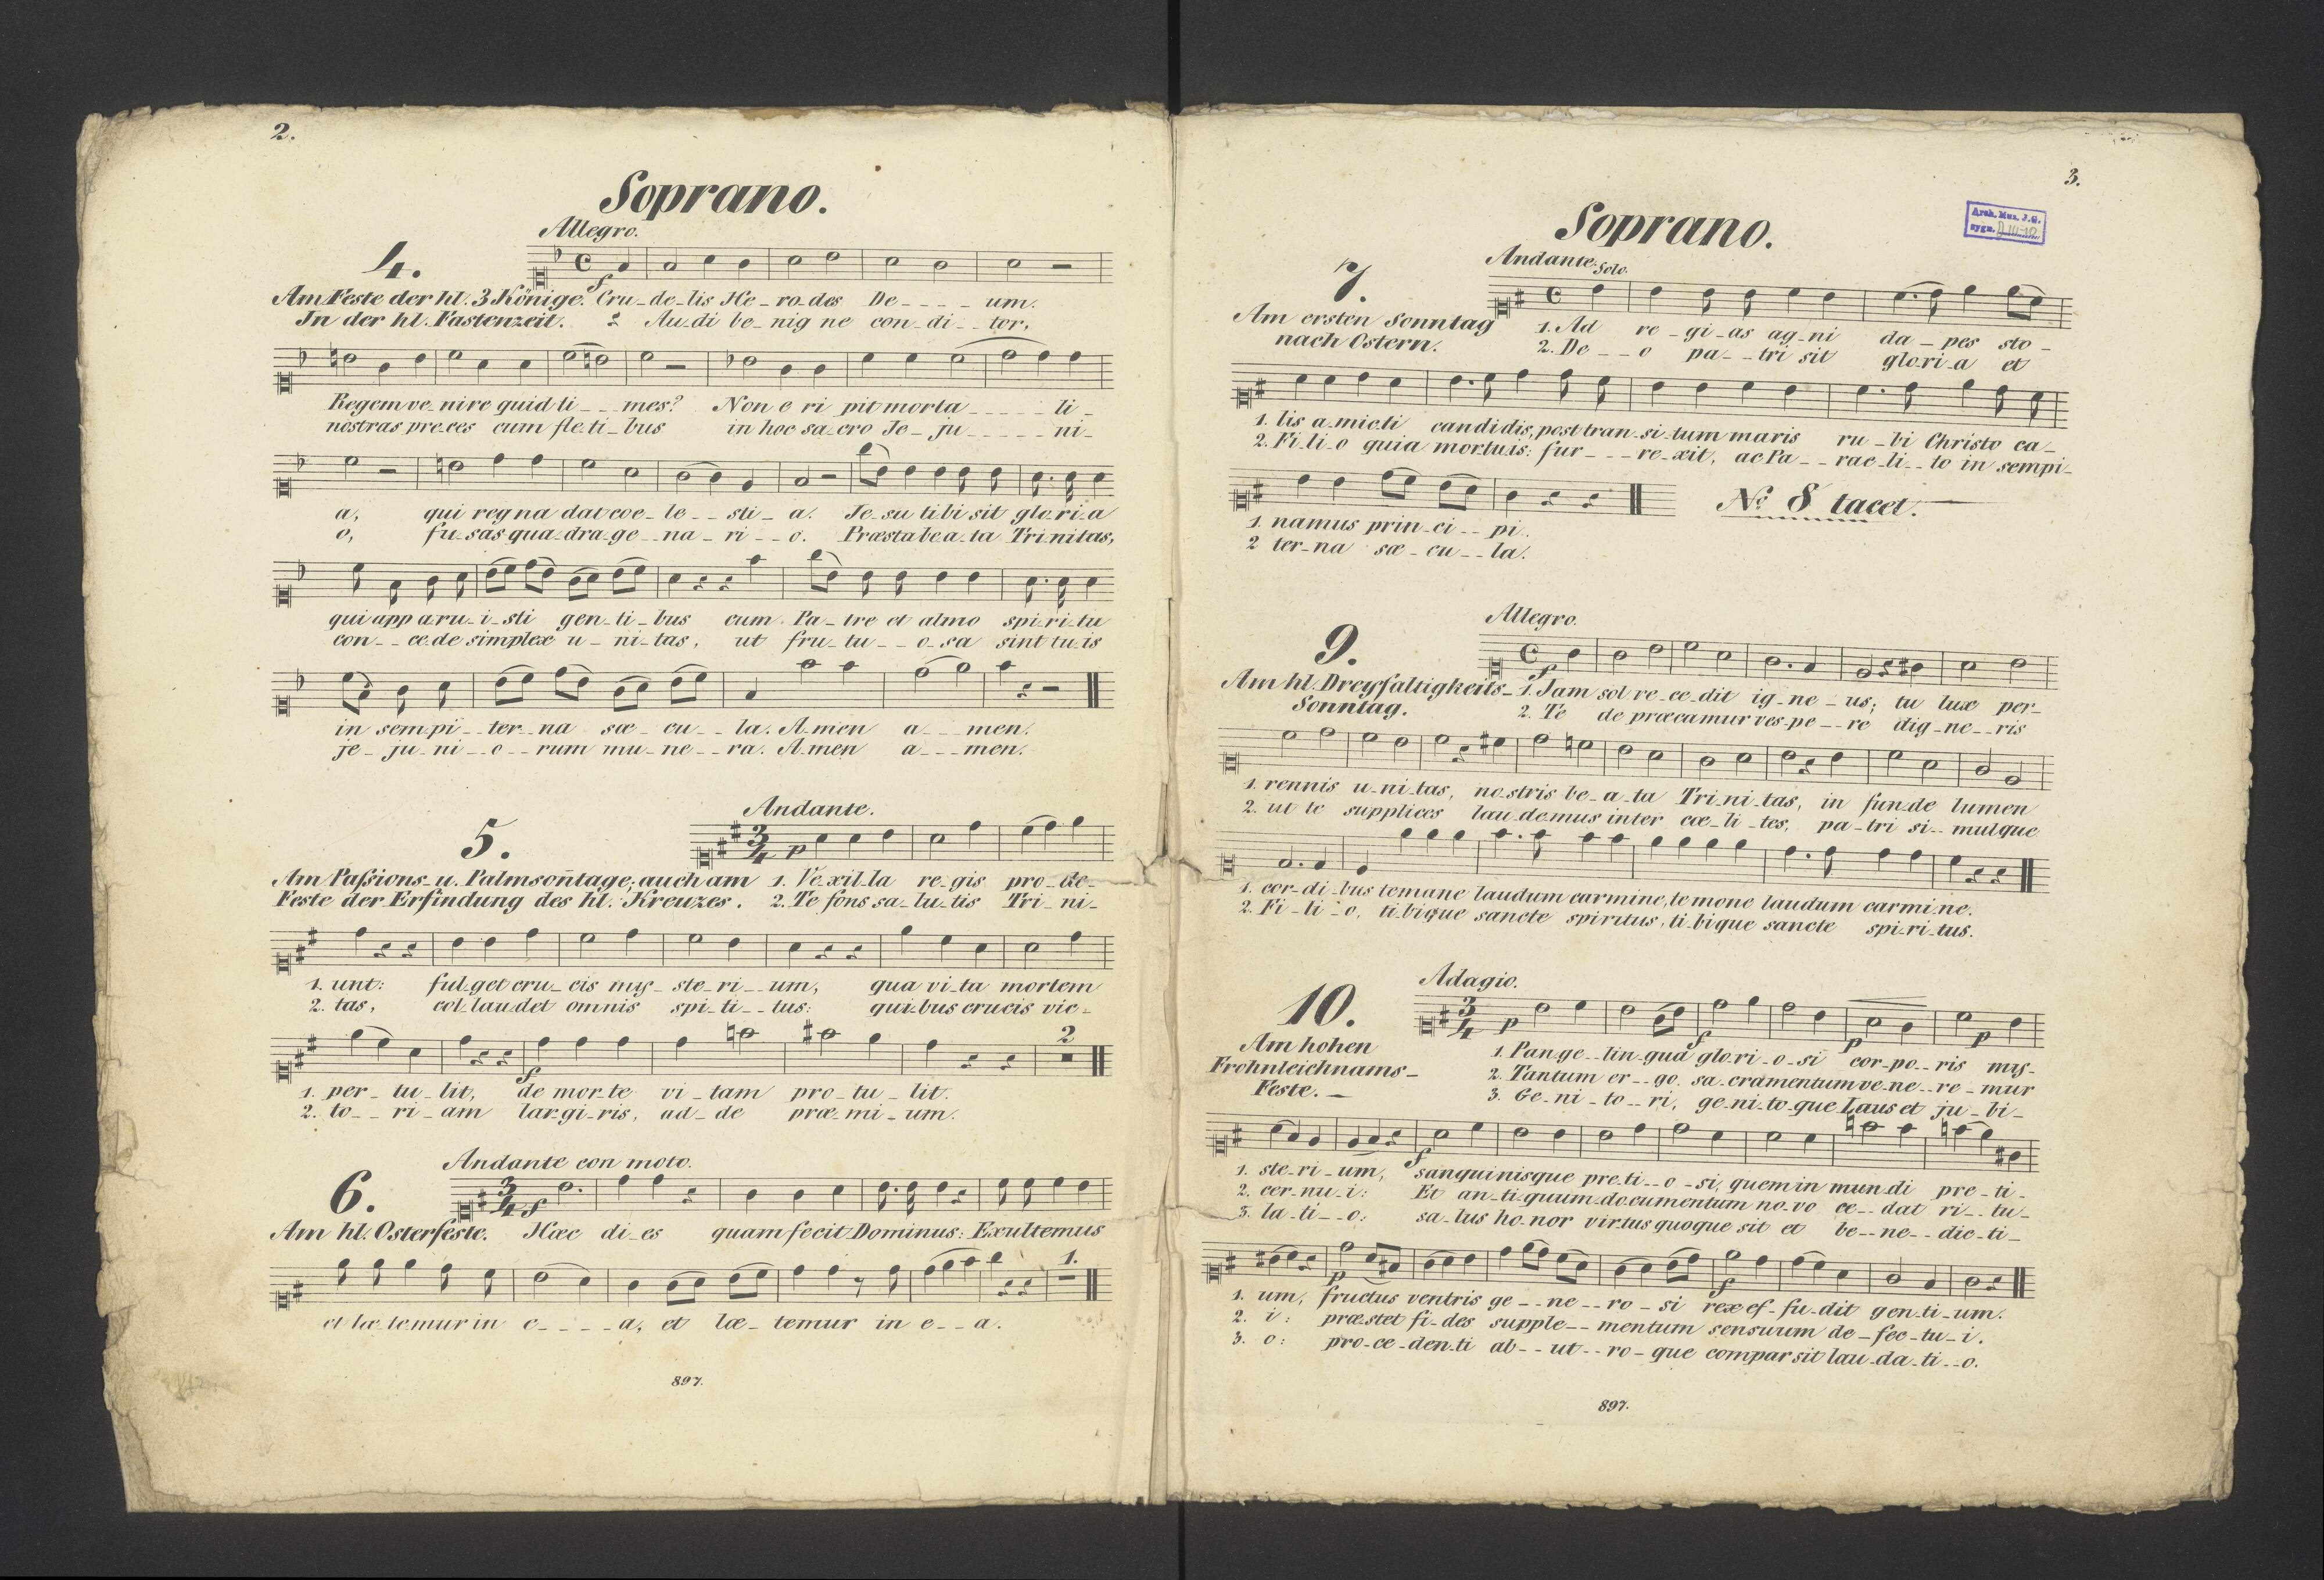 2.
Soprano.
Allegro.
4.
Am Feste der hl. 3 Könige. Cru_de_lis He_ro_des De____um.
In der hl. Fastenzeit. 2 Au_di be_nig ne con_di__tor,
Regem ve_nire quid ti___mes? Non e ri pit morta_____li_
nostras pre_ces cum fle_ti_bus in hoc sa_cro Je_ju_____ni_
a, qui reg na dat coe_le__sti_a. Je_su tibi sit glo_ri_a
o, fu_sas qua_dra_ge_na_ri__o. Præsta be_a_ta Tri_nitas,
qui app a_ru_i_sti gen_ti_bus cum Pa_tre et almo spi_ri_tu
con__ce_de simplex u_ni_tas, ut fru_tu__o_sa sint tu_is
in sem_pi_ter_na sæ_cu__la. A_men a___men.
je_ju_ni__o__rum mu_ne__ra. A_men a___men.
Andante.
5.
p
Am Passions_u. Palmsoñtage; auch am 1. Ve_xil_la re_gis pro_de_
Feste der Erfindung des hl. Kreuzes. 2. Te fons sa_lu_tis Tri_ni_
1. unt: ful_get cru_cis my_ste_ri__um, qua vi_ta mortem
2. tas, col_lau_det omnis spi_ti__tus: qui_bus crucis vic_
2
f
1. per_tu_lit, de mor_te vi_tam pro_tu_lit.
2. to__ri_am lar_gi_ris, ad_de præ_mi_um.
Andante con moto.
6.
f
Am hl. Osterfeste. Hæc di_es quam fecit Dominus: Exultemus
1.
et læ_temur in e____a, et læ_temur in e__a.
897.
3.
Soprano.
Arch. Mus. J.G.
sygn.
Andante. Solo.
7.
Am ersten Sonntag 1. Ad re_gi_as ag_ni da_pes sto_
nach Ostern. 2. De__o pa__tri sit glo_ri_a et
1. lis a_mic_ti candidis, post tran_si_tum maris ru_bi Christo ca_
2. Fi_li_o quia mortuis: sur___re_xit, ac Pa__rac_li__to in sempi_
1. namus prin_ci__pi.
2 ter_na sæ_cu__la.
No. 8 tacet.
Allegro.
9.
f
Am hl. Dreyfaltigkeits_ 1. Jam sol re_ce_dit ig_ne_us; tu lux per_
Sonntag. 2. Te de præcamur ves_pe__re dig_ne__ris
1. rennis u_ni_tas, no_stris be_a_ta Tri_ni_tas, in fun_de lumen
2. ut te supplices lau_demus inter cœ_li_tes, pa_tri si__mulque
1. cor_di_bus te mane laudum carmine, te mone laudum carmi_ne.
2. Fi_li_o, ti_bique sancte spiritus, ti_bique sancte spi_ri_tus.
Adagio.
10.
p f p p
Am hohen 1. Pange_lin_gua glo_ri_o_si cor_po__ris mys_
Frohnleichnams_ 2. Tantum er__go sa_cramentum ve_ne__re_mur
Feste._ 3. Ge_ni_to__ri, ge_ni_to_que Laus et ju_bi_
f
1. ste_ri_um, sanguinisque pre_ti__o_si, quem in mun_di pre_ti_
2. cer_nu_i: Et an_ti_quum do_cumentum no_vo ce__dat ri__tu_
3. la_ti__o: sa_lus ho_nor vir_tus quoque sit et be__ne__dic_ti_
p f
1. um, fructus ventris ge__ne__ro_si rex ef_fu_dit gen_ti_um.
2. i: præstet fi_des supple__mentum sensuum de_fec_tu_i.
3. o: pro_ce_den_ti ab__ut__ro_que compar sit lau_da_ti__o.
897.